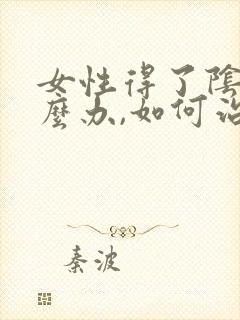 女性得了陰
麼办,如何治
秦波